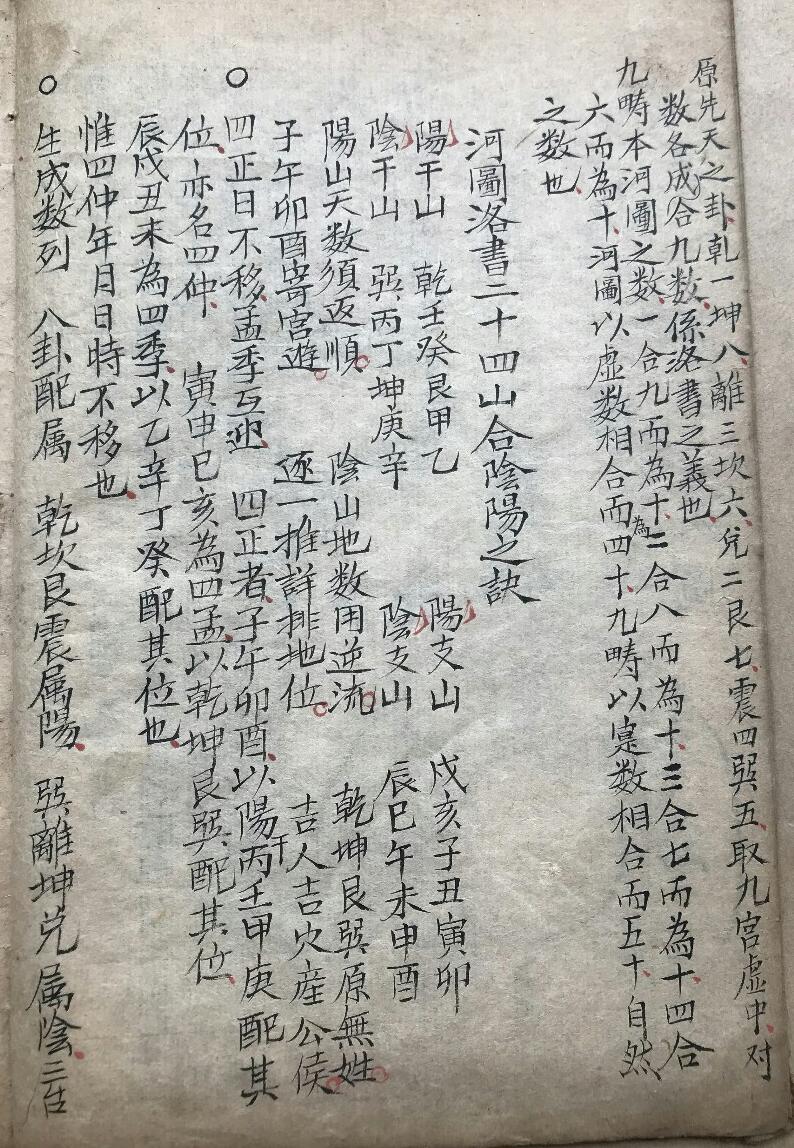 原先天之卦乾一坤八離三坎六兌二艮七震四巽五取九宮虛中对
数各成合九数係洛書之義也
九畴本河圖之数一合九而為十二合八而為十三合七而為十四合
為
六而為十河圖以虛数相合而四十九畴以寔数相合而五十自然
之数也
河圖洛書二十四山合陰陽之訣
陽干山 乾壬癸艮甲乙 陽支山 戌亥子丑寅卯
陰干山 巽丙丁坤庚辛 陰支山 辰巳午未申酉
陽山天数須返順 陰山地数用逆流 乾坤艮巽原無姓
子午卯酉寄宮遊 逐一推詳排地位 吉人吉穴産公侯
四正日不移孟季互迎 四正者子午卯酉以陽丙壬甲庚配其
干
位亦名四仲 寅申巳亥為四孟以乾坤艮巽配其位
辰戌丑未為四季以乙辛丁癸配其位也
惟四仲年月日時不移也
生成数列 八卦配属 乾坎艮震属陽 巽離坤兌属陰三